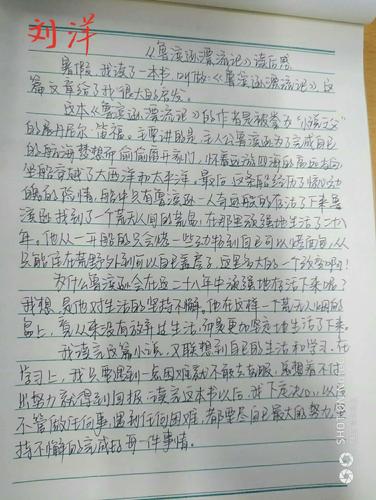 刘洋
《鲁滨逊漂流记》读后感
暑假,我读了一本书,叫做《鲁滨逊漂流记》,这
篇文章给了我很大的启发。
这本《鲁滨逊漂流记》的作者是被称为“小说之父”
的丹尼尔·笛福。主要讲的是:主人公鲁滨逊为了完成自己
的航海梦想而偷偷离开家门,怀着远游四海的高远志向
坐船穿越了大西洋和太平洋。最后,这条船经历了惊心动
魄的险情,船中只有鲁滨逊一人
滨逊找到了一个荒无人烟的荒岛,在那里顽强地生活了二十八
年。他从一开始的只会
只能住在荒野外到可以自己盖房子,这是多大的一个改变啊!
为什么鲁滨逊会在这二十八年中顽强地存活下来呢?
我想,是他对生活的坚持不懈。他在这样一个荒无人烟的
岛上,看从来没有放弃过生活,而是更加坚定地生活了下来。
我读完这篇小说,又联想到自己的生活和学习。在
学习上,我只要遇到一点困难就不敢去克服,总想着不付
出努力就得到回报。读完这本书以后,我下定决心,以后
不管做任何事,遇到任何困难,都要尽自己最大的努力,坚
持不懈的完成好每一件事情。
SHOT ON